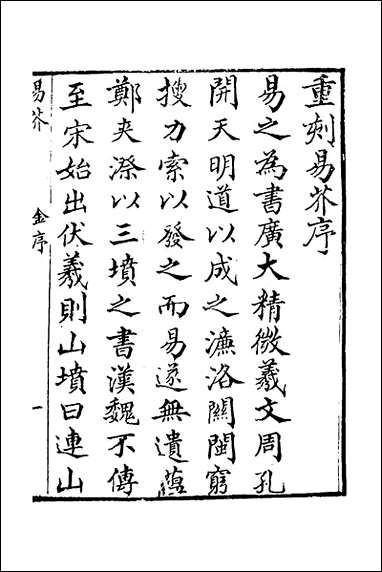 重刻易芥序
易之為書廣大精微羲文周孔
開天明道以成之濂洛關閩窮
搜力索以發之而易遂無遺蘊
鄭夾漈以三墳之書漢魏不傳
至宋始出伏羲則山墳曰連山
易芥
金序
一